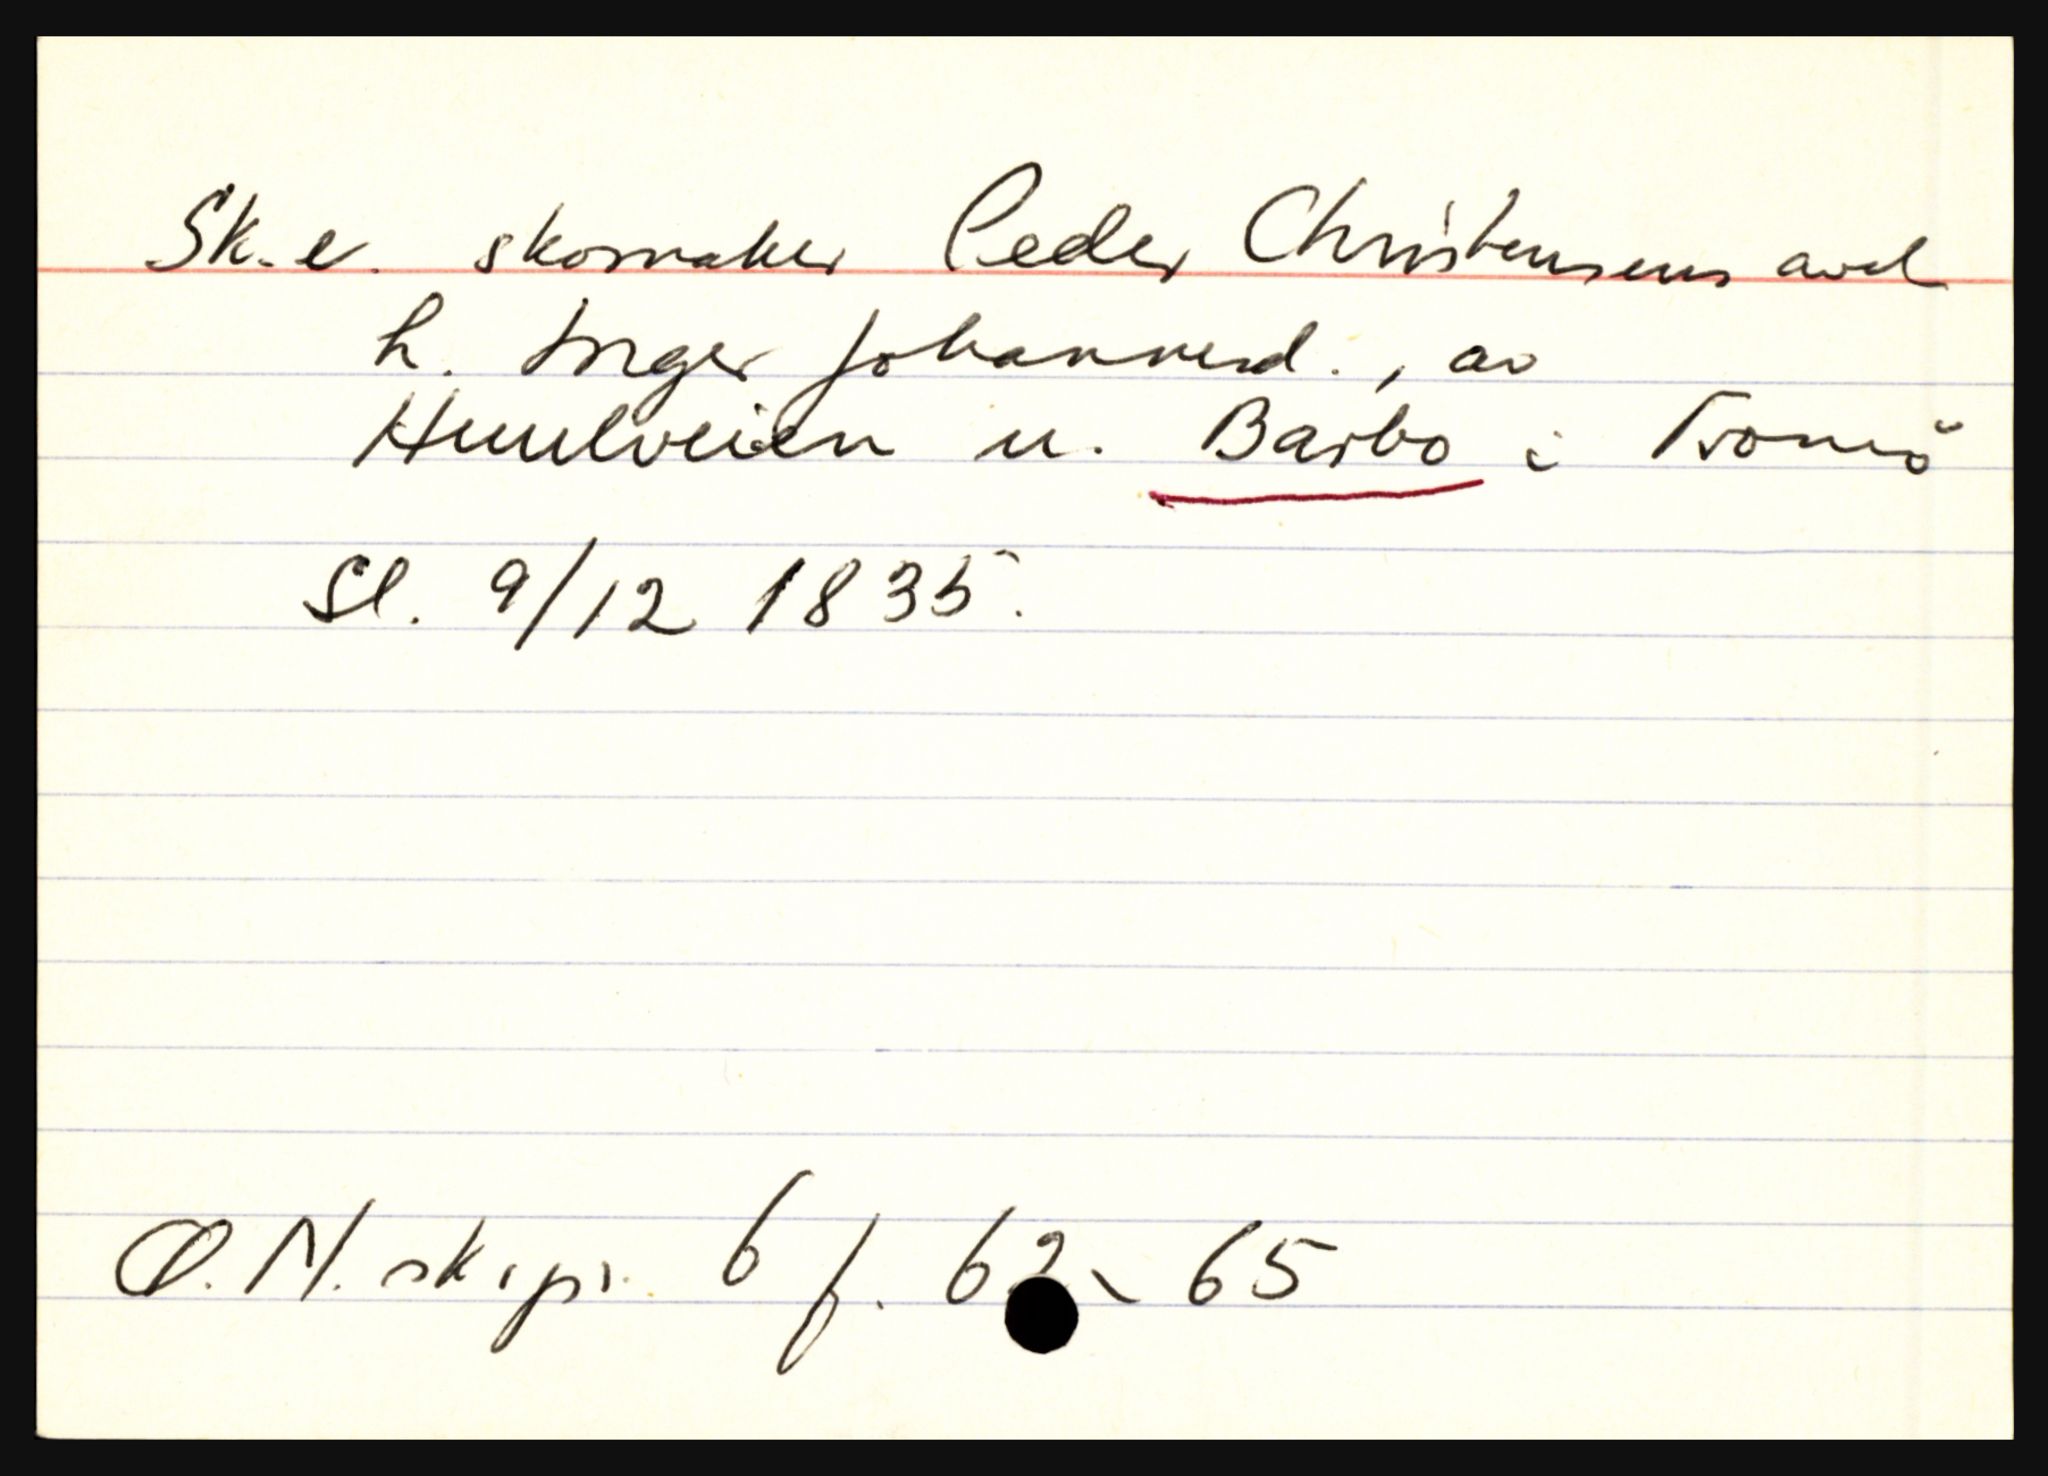 Sk. e. skomaker Peder Christensens avd
h. Inger Johannesd., av
Huulveien u. Barbo i Tromø
Sl. 9/12 1835.
Ø. N. sk.pr. 6 f. 62 - 65